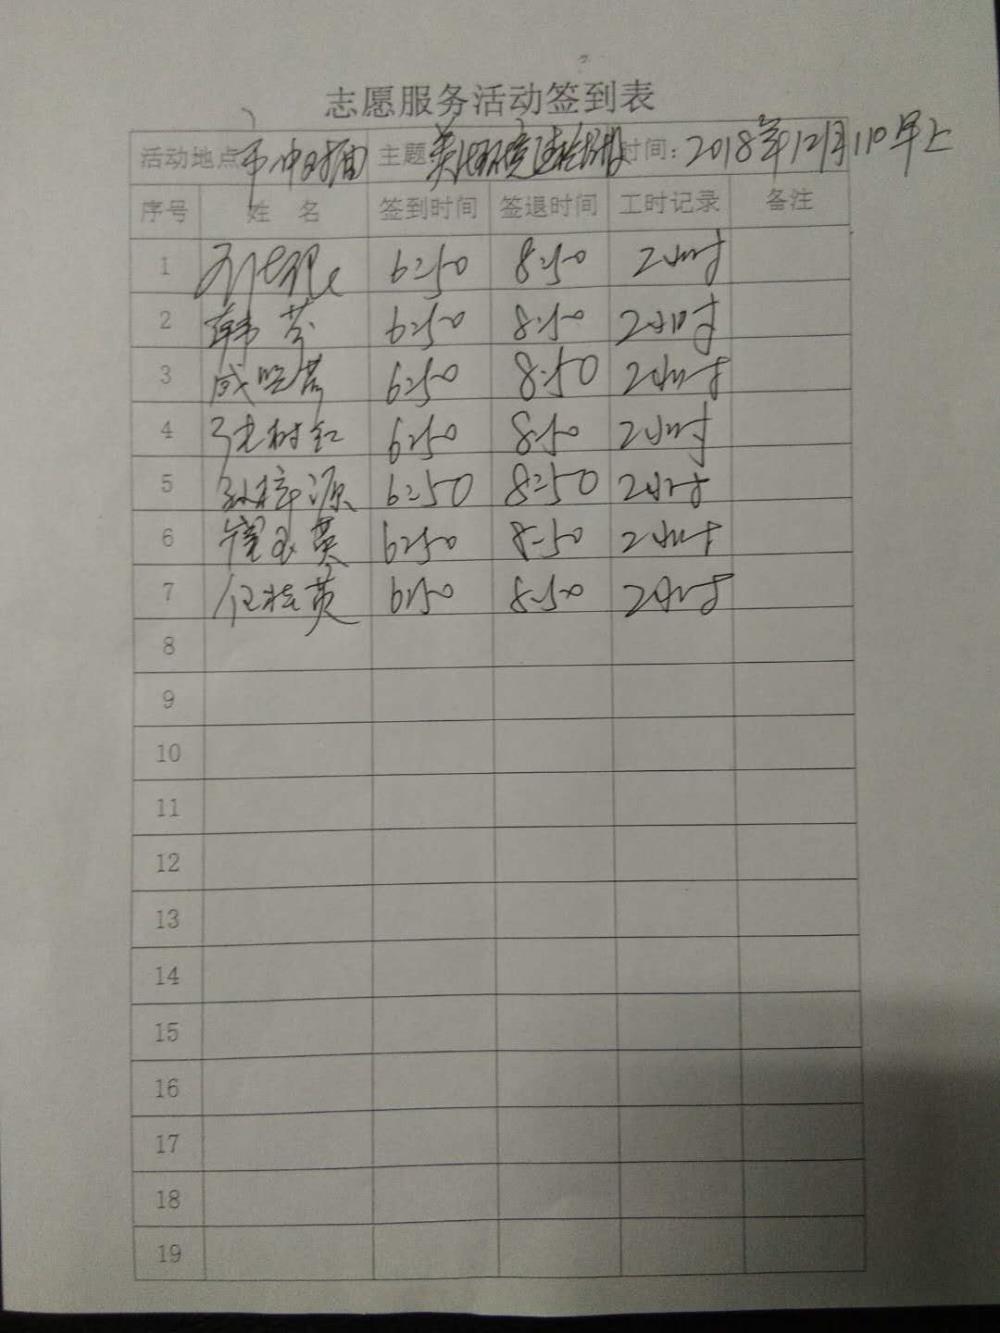 志愿服务活动签到表
活动地点 市中 主题 美化环境 时间：2018年12月11日早上
序号 姓 名 签到时间 签退时间 工时记录 备注
1 6:50 8:50 2小时
2 韩芬 6:50 8:50 2小时
3 6:50 8:50 2小时
4 张树红 6:50 8:50 2小时
5 孙梓源 6:50 8:50 2小时
6 崔玉英 6:50 8:50 2小时
7 任桂英 6:50 8:50 2小时
8
9
10
11
12
13
14
15
16
17
18
19